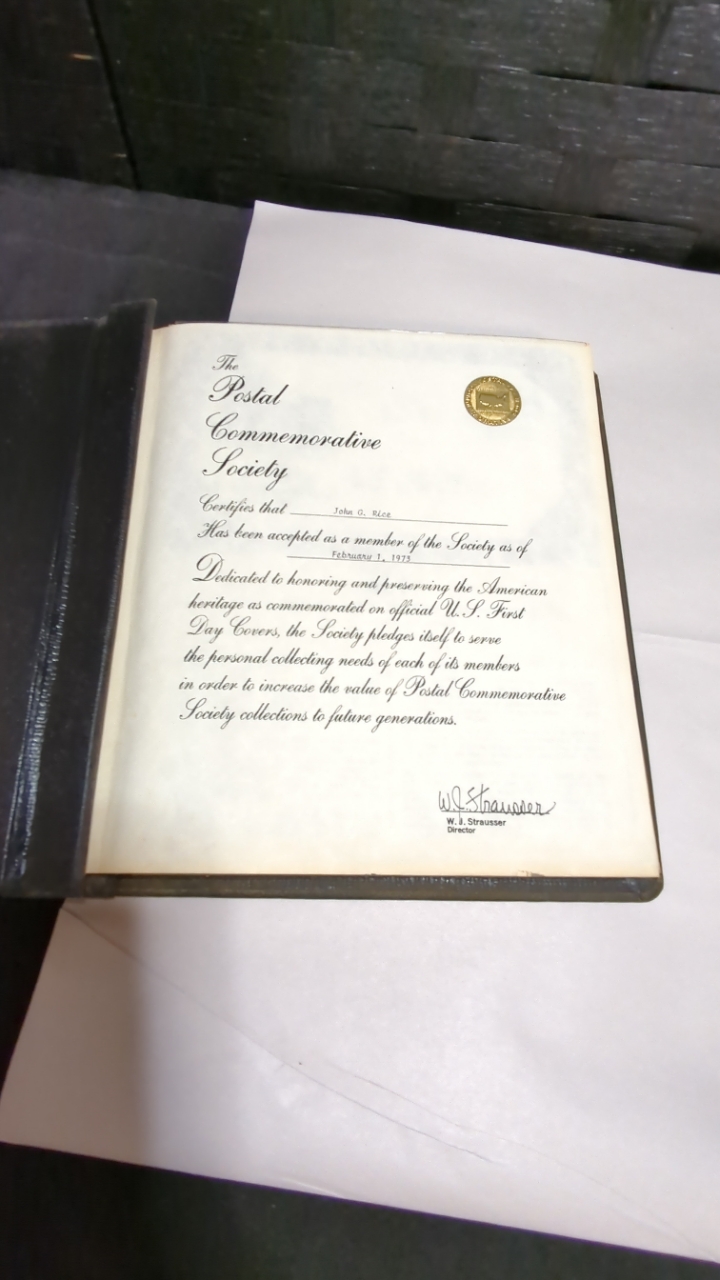 The
Postal
Commemorative
Society
Certifies that John G. Rice
Has been accepted as a member of the Society as of
February 1, 1975
Dedicated to honoring and preserving the American
heritage as commemorated on official U.S. First
Day Covers, the Society pledges itself to serve
the personal collecting needs of each of its members
in order to increase the value of Postal Commemorative
Society collections to future generations.
W.J. Strausser
W. J. Strausser
Director